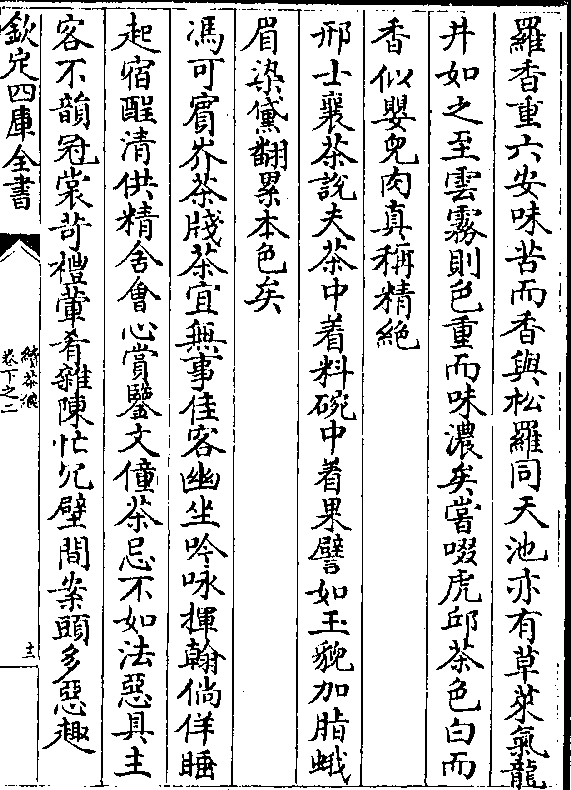 羅香重六安味苦而香與松羅同天池亦有草萊氣龍
井如之至雲霧則色重而味濃矣嘗啜虎邱茶色白而
香似嬰兒肉真稱精絶
邢士襄茶說夫茶中着料碗中着果譬如玉貌加脂蛾
眉染黛翻累本色矣
馮可賔岕茶牋茶宜無事佳客幽坐吟咏揮翰倘佯睡
起宿酲清供精舍㑹心賞鑒文僮茶忌不如法惡具主
客不韻冠裳苛禮葷肴雜陳忙冗壁間案頭多惡趣
欽定四庫全書
續茶經
卷下之二